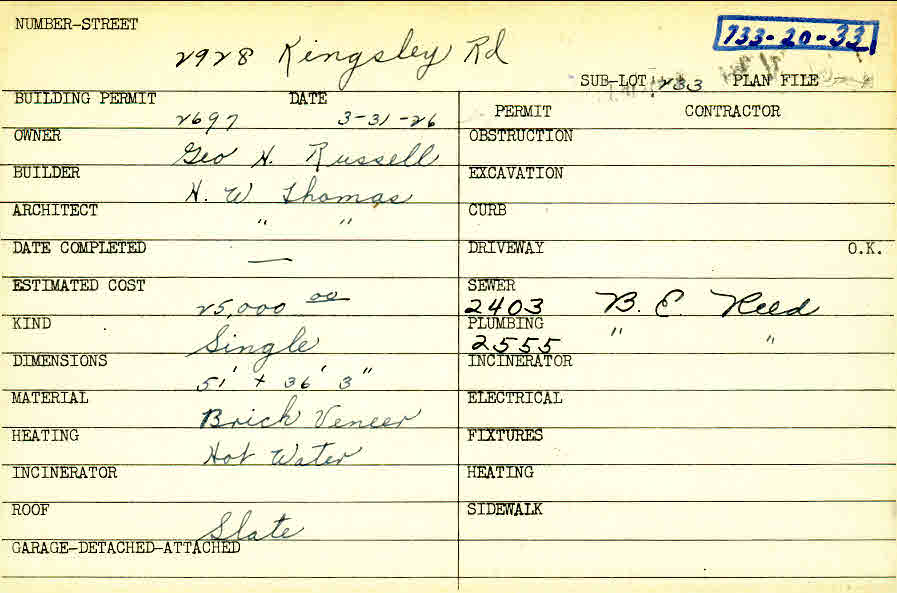 NUMBER-STREET
2928 Kingsley Rd
733-20-33
SUB-LOT 233 PLAN FILE
BUILDING PERMIT DATE
2697 3-31-26
PERMIT CONTRACTOR
OWNER
Geo H. Russell
OBSTRUCTION
BUILDER
H. W Thomas
EXCAVATION
ARCHITECT
" "
CURB
DATE COMPLETED
—
DRIVEWAY O.K.
ESTIMATED COST
25,000 00
SEWER
2403 B. E. Reed
KIND
Single
PLUMBING
2555 " "
DIMENSIONS
51' + 36' 3"
INCINERATOR
MATERIAL
Brick Veneer
ELECTRICAL
HEATING
Hot Water
FIXTURES
INCINERATOR
HEATING
ROOF
Slate
SIDEWALK
GARAGE-DETACHED-ATTACHED